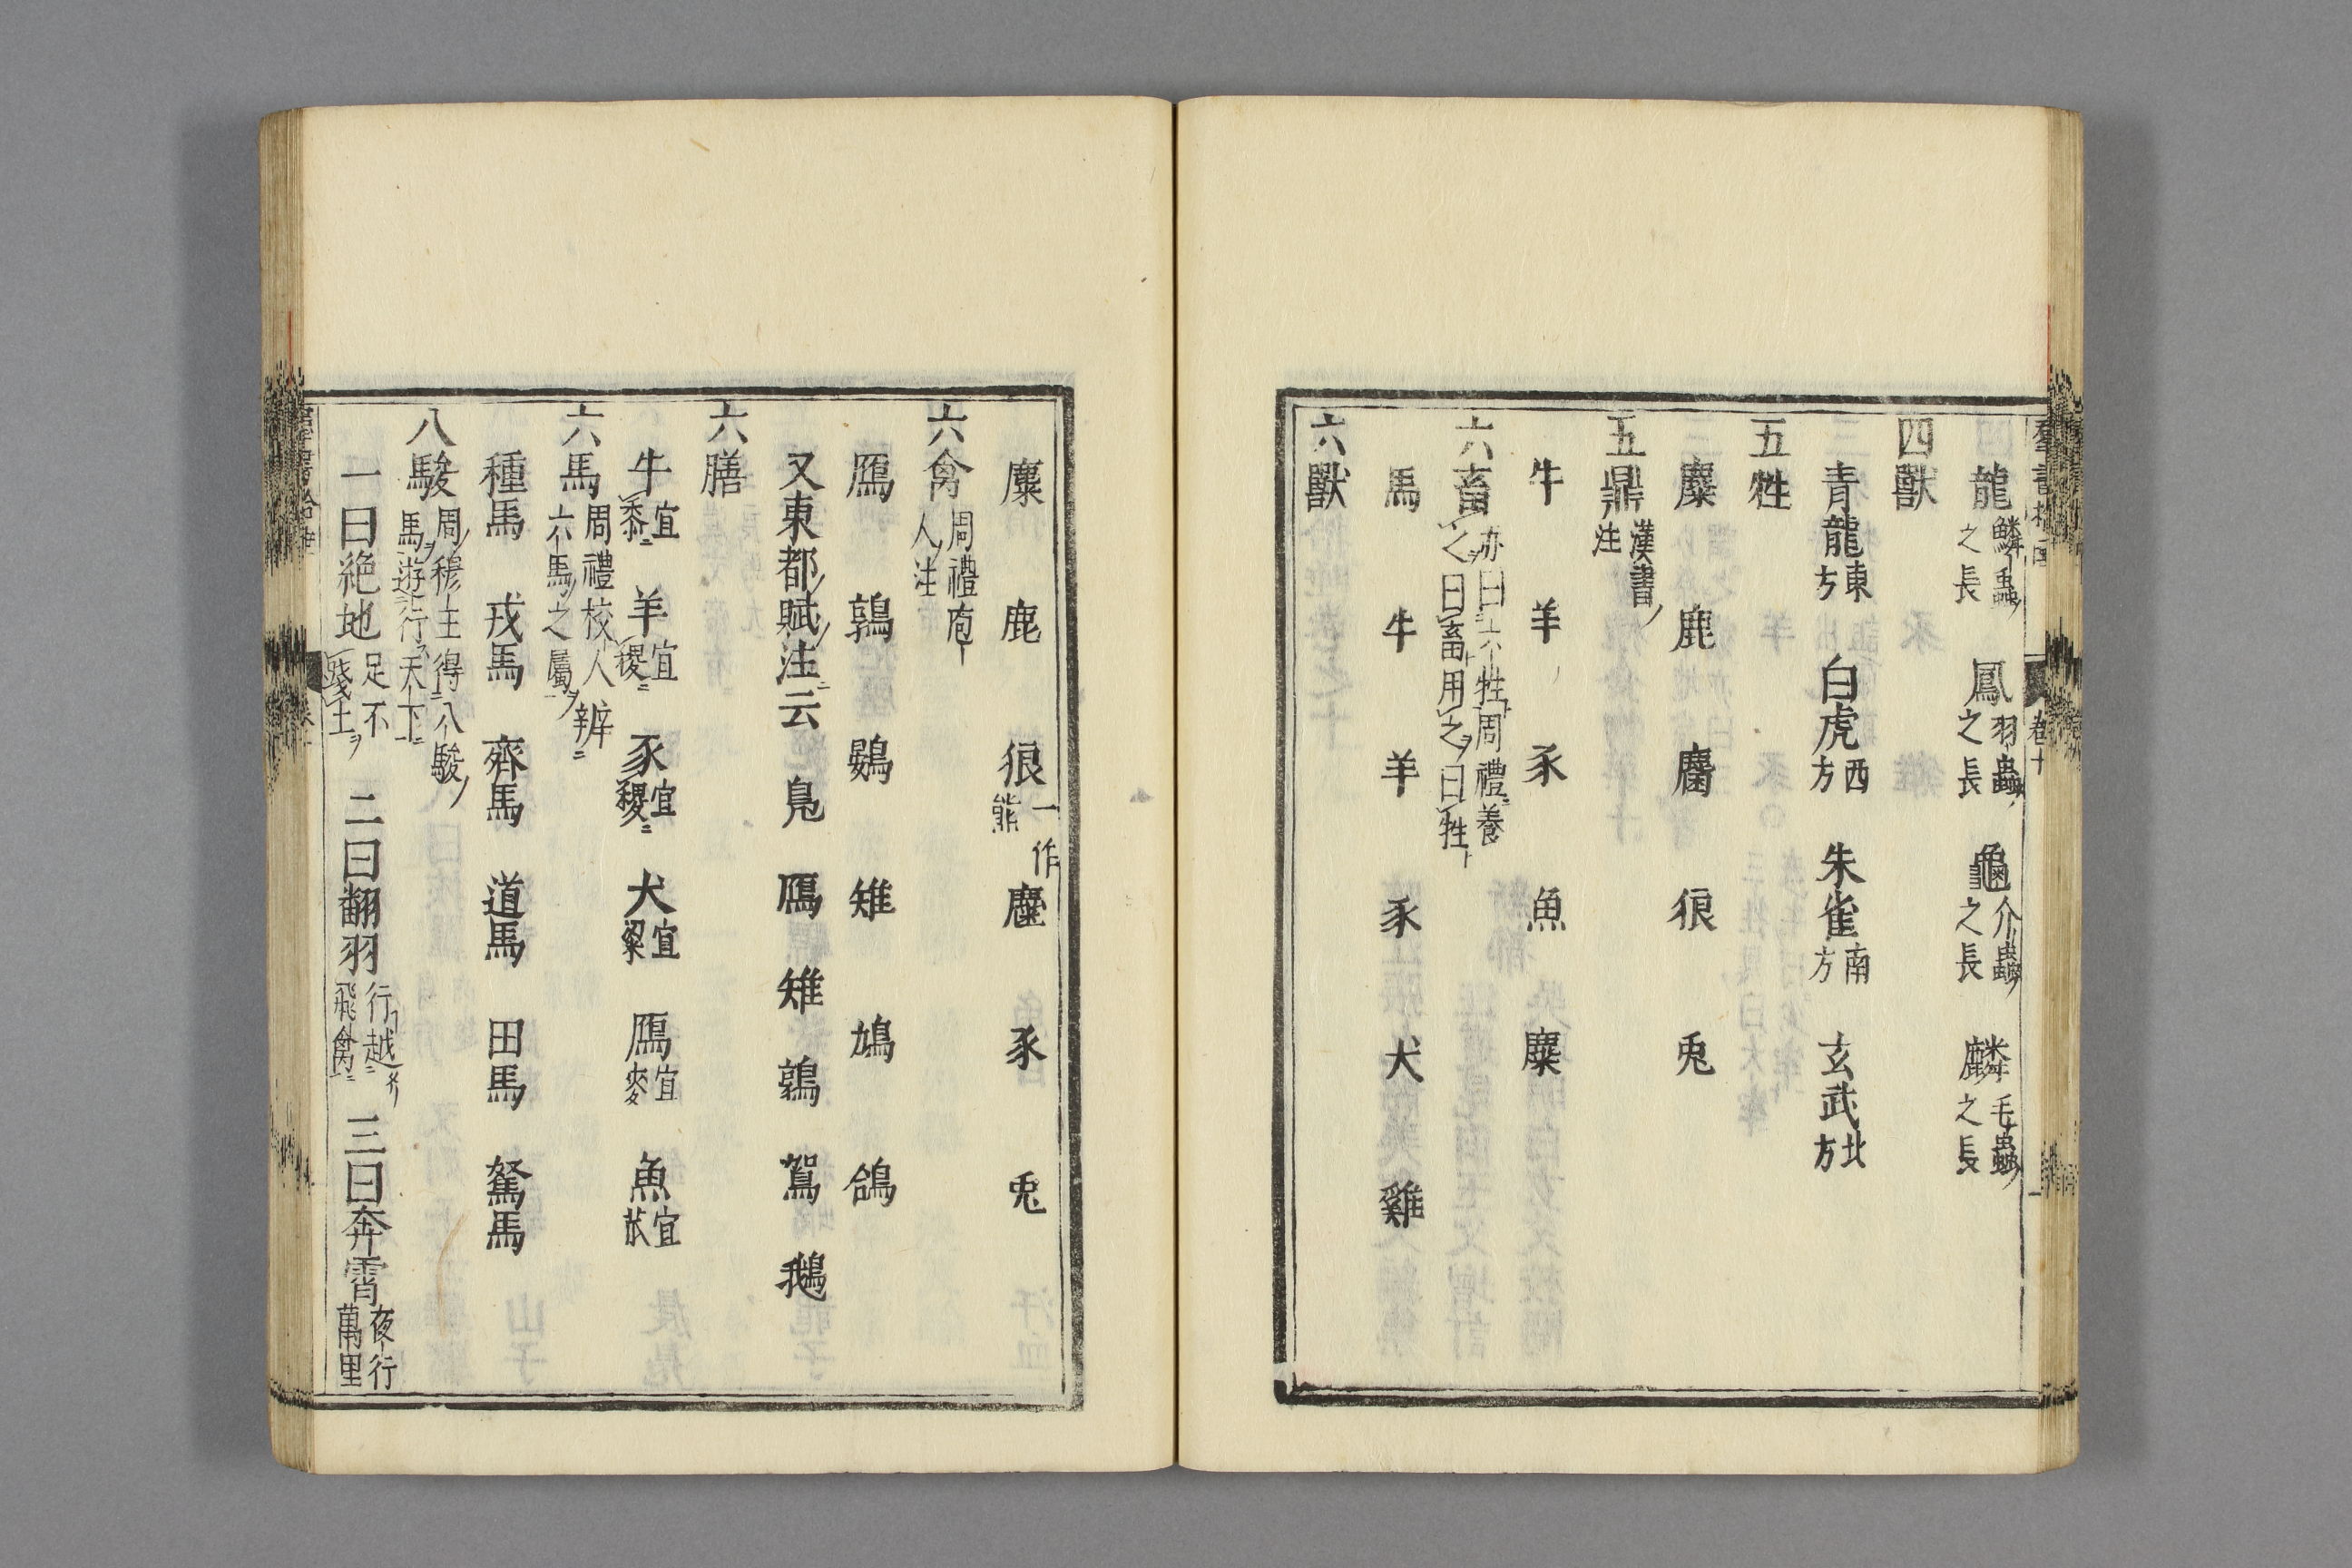 龍鱗虫之長　鳳羽蟲之長　龜介蟲之長　麟毛蟲之長
四獸
青龍東方　白虎西方　朱雀南方　玄武北方
五牲
麋　鹿　麕　狼　兎
五鼎漢書注
牛　羊　豕　魚　麋
六畜亦曰六牲周禮養之曰畜用之曰牲
馬　牛　羊　豕　犬　雞
六獸
麋　鹿　狼一作熊　麈　豕　兎
六禽周禮庖人注
鴈　鶉　鷃　雉　鳩　鴿
又東都賦注云　鳧　鴈　雉　鶉　鴐　鵝
六膳
牛宜黍　羊宜稷　豕宜稷　犬宜粱　鴈宜麥　魚宜苽
六馬周禮校人辨六馬之屬
種馬　戎馬　齊馬　道馬　田馬　駑馬
八駿周穆王得八駿馬遊行天下
一曰絶地足不踐土　二曰翻羽行越飛禽　三曰奔霄夜行萬里
卷十